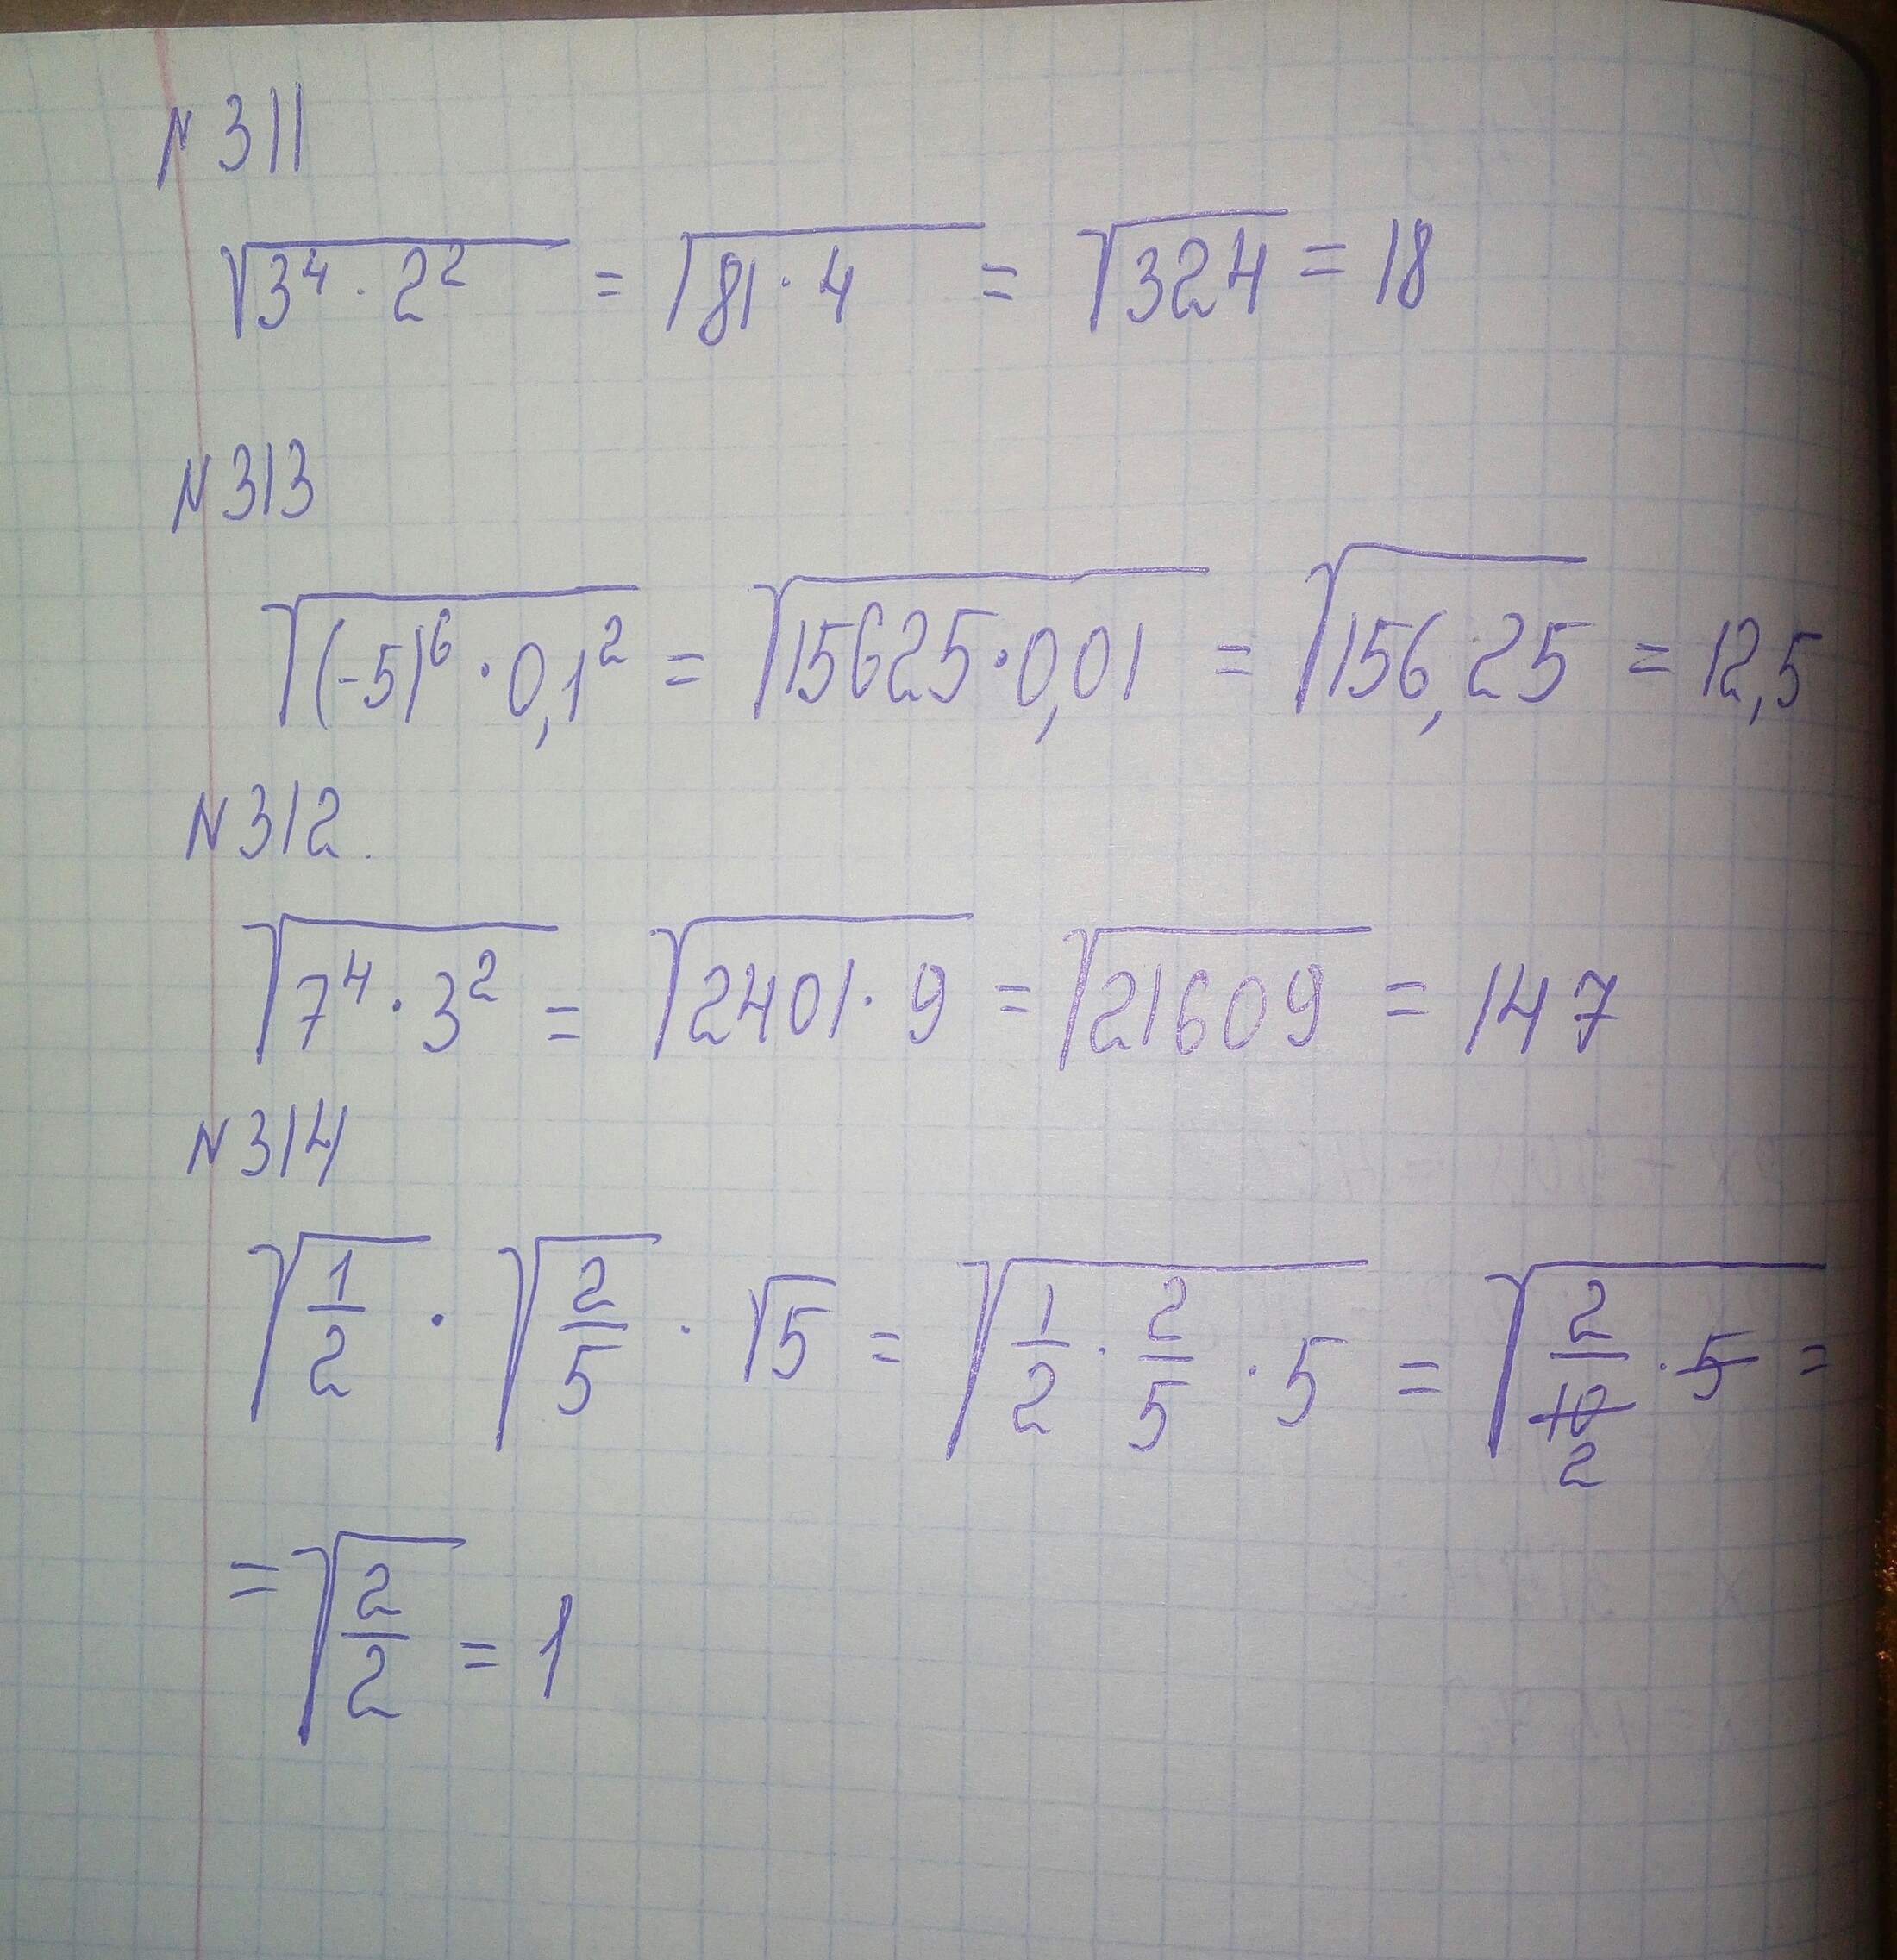 N 311
√(3⁴ · 2²) = √(81 · 4) = √324 = 18
N 313
√((-5)⁶ · 0,1²) = √(15625 · 0,01) = √156,25 = 12,5
N 312.
√(7⁴ · 3²) = √(2401 · 9) = √21609 = 147
N 314
√(1/2) · √(2/5) · √5 = √(1/2 · 2/5 · 5) = √(2/10 2 · 5) =
= √(2/2) = 1